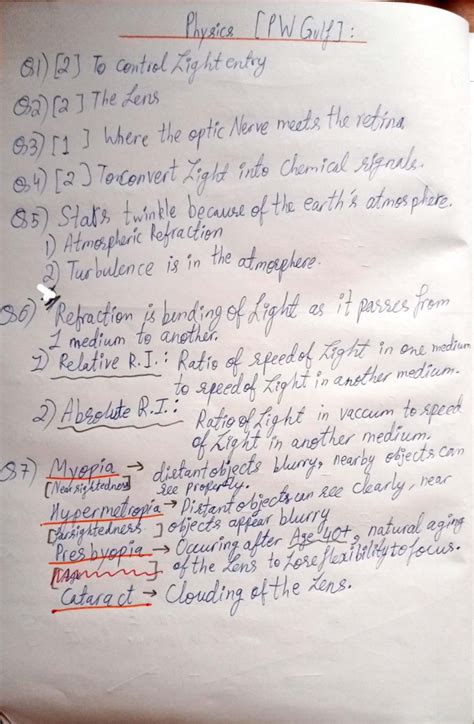 Physics [PW Gulf]:
Q1) [2] To control Light entry
Q2) [2] The Lens
Q3) [1] Where the optic Nerve meets the retina
Q4) [2] To convert Light into Chemical signals.
Q5) Stars twinkle because of the earth's atmosphere.
1) Atmospheric Refraction
2) Turbulence is in the atmosphere.
Q6) Refraction is bending of Light as it passes from
1 medium to another.
1) Relative R.I.: Ratio of speed of Light in one medium
to speed of Light in another medium.
2) Absolute R.I.: Ratio of Light in vaccum to speed
of Light in another medium.
Q7) Myopia → distant objects blurry, nearby objects can
[Nearsightedness] see properly.
Hypermetropia → Distant objects can see clearly, near
[farsightedness] objects appear blurry
Presbyopia → Occuring after Age 40+, natural aging
of the Lens to Lose flexibility to focus.
Cataract → Clouding of the Lens.